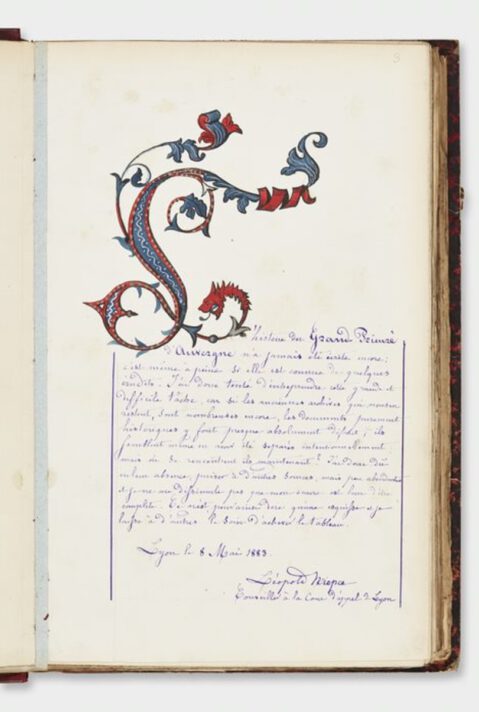 L'histoire du Grand Prieuré
d'Auvergne n'a jamais été écrite encore;
c'est même à peine si elle est connue de quelques
érudits. J'ai donc tenté d'entreprendre cette grande et
difficile tâche, car si les anciennes archives que nous en
restent, sont nombreuses encore, les documents purement
historiques y font presque absolument défaut; ils
semblent même en avoir été séparés intentionnellement
mais où se rencontrent-ils maintenant? J'ai donc dû
en leur absence, puiser à d'autres sources, mais peu abondantes
et je ne me dissimule pas que mon œuvre est loin d'être
complète. Ce n'est peut-être qu'une esquisse et je
laisse à d'autres le soin d'achever le tableau.
Lyon le 8 Mai 1883.
Léopold Niepce
Conseiller à la Cour d'appel de Lyon